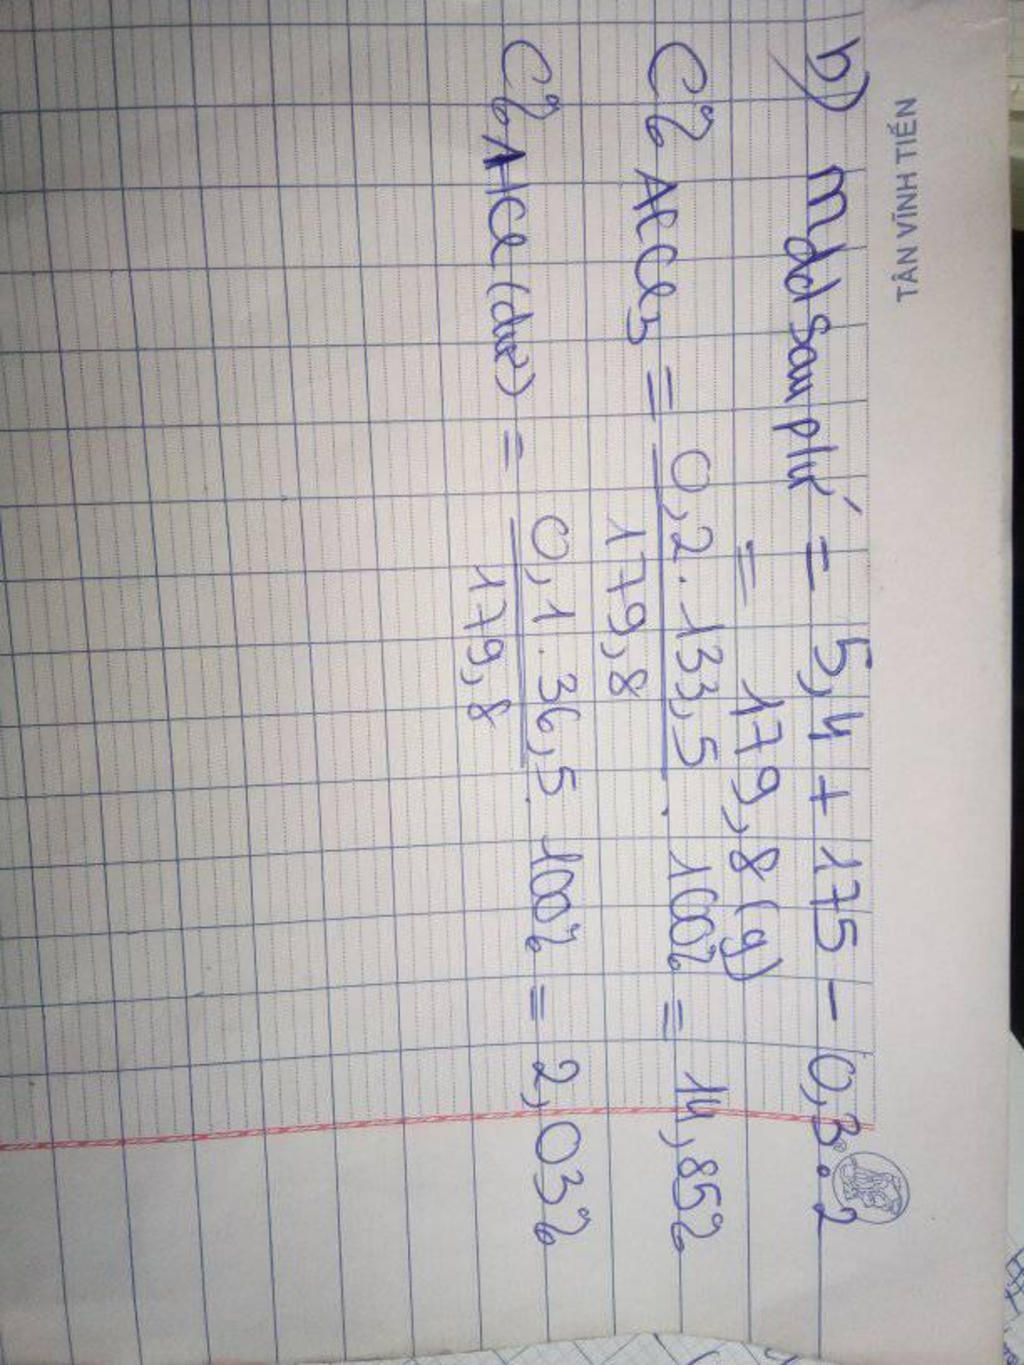 TÂN VĨNH TIẾN
b) mdd sau phứ = 5,4 + 175 - 0,3.2
= 179,8 (g)
C% AlCl3 = 0,2.133,5 / 179,8 . 100% = 14,85%
C% HCl (dư) = 0,1.36,5 / 179,8 . 100% = 2,03%